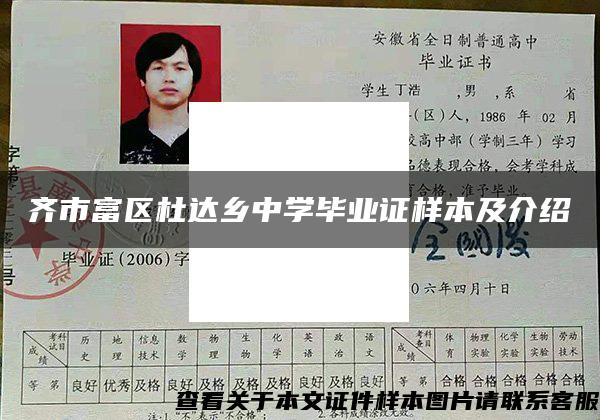 安徽省全日制普通高中
毕业证书
学生丁浩 ,男 ,系 省
(区)人, 1986 年 02 月
高中部 (学制三年) 学习
品德表现合格, 会考学科成
合格, 准予毕业。
齐市富区杜达乡中学毕业证样本及介绍
毕业证(2006)字
〇六年四月十日
考试科目 历史 地理 信息技术 数学 物理 生物 化学 英语 政治 语文
考查科目 体育 物理实验 化学实验 生物实验 劳动技术
成绩
等第 良好 优秀 及格 良好 及格 及格 及格 良好 及格 良好
成绩 合格 合格 合格 合格 合格
查看关于本文证件样本图片请联系客服
注:1."不"表示"不合格";
2.各科成绩涂改无效。